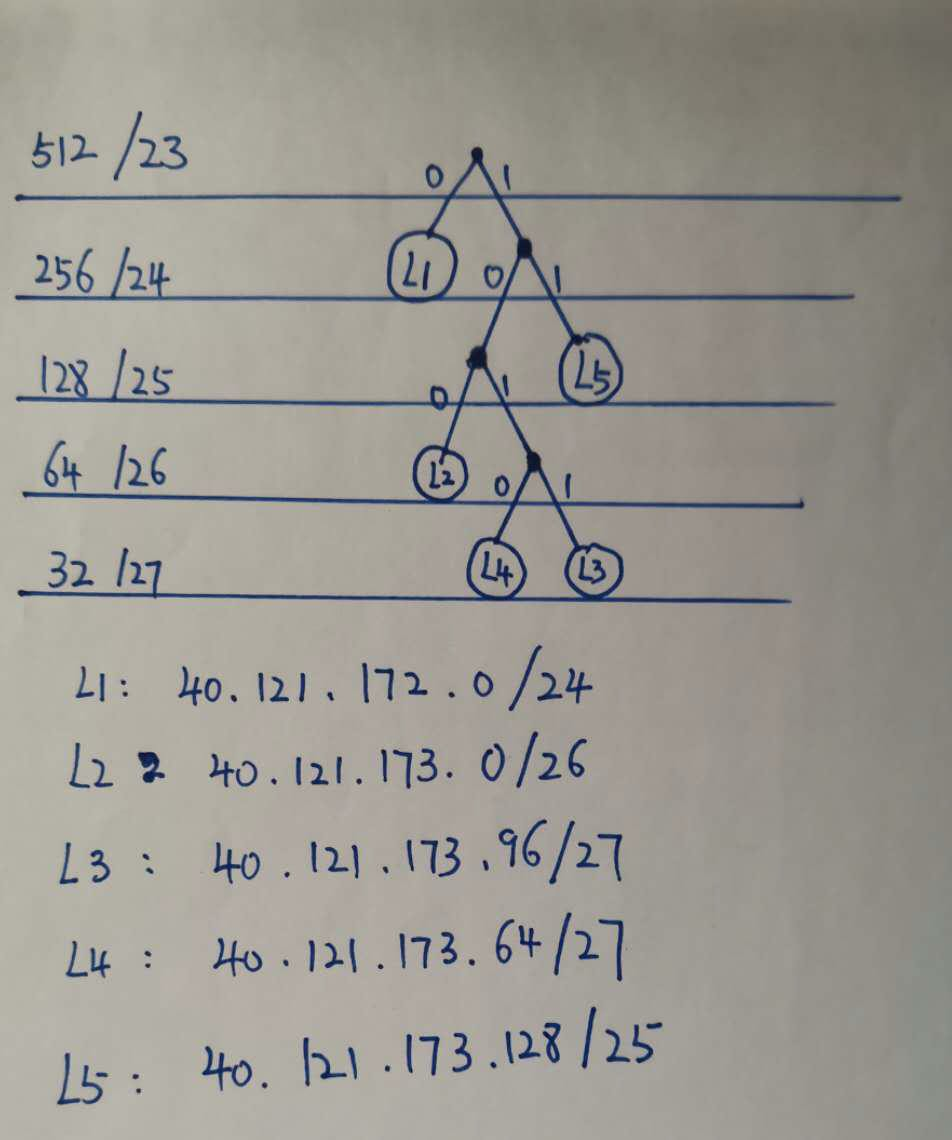 512 /23
0 1
L1
256 /24
0 1
L5
128 /25
0 1
L2
64 /26
0 1
L4 L3
32 /27
L1: 40.121.172.0/24
L2 : 40.121.173.0/26
L3 : 40.121.173.96/27
L4 : 40.121.173.64/27
L5 : 40.121.173.128/25